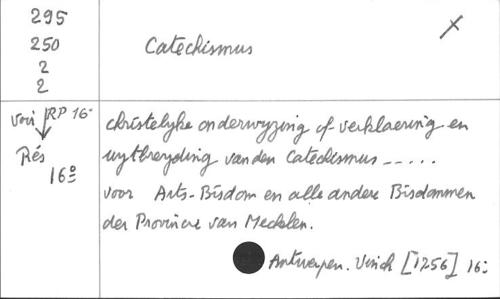 295
250
2
2
Catechismus
voir RP 16-
Rés
16º
christelyke onderwyzing of verklaering en
uytbreyding van den Catechismus -----.
voor Arts-Bisdom en alle andere Bisdommen
der Provincie van Mechelen.
Antwerpen. [1756] 16º